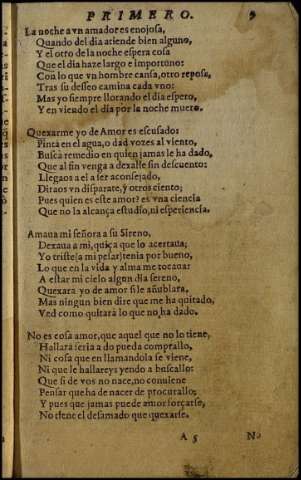 PRIMERO. 9
La noche a vn amador es enojosa,
Quando del dia atiende bien alguno,
Y el otro de la noche espera cosa
Que el dia haze largo e importuno:
Con lo que vn hombre cansa, otro reposa,
Tras su desseo camina cada vno:
Mas yo siempre llorando el dia espero,
Y en viendo el dia por la noche muero.
Quexarme yo de Amor es escusado:
Pinta en el agua, o dad vozes al viento,
Busca remedio en quien jamas le ha dado,
Que al fin venga a dexalle sin descuento:
Llegaos a el a ser aconsejado,
Diraos vn disparate, y otros ciento;
Pues quien es este amor? es vna ciencia
Que no la alcança estudio, ni esperiencia.
Amaua mi señora a su Sireno,
Dexaua a mi, quiça que lo acertaua;
Yo triste (a mi pesar) tenia por bueno,
Lo que en la vida y alma me tocaua:
A estar mi cielo algun dia sereno,
Quexara yo de amor si le añublara,
Mas ningun bien dire que me ha quitado,
Ved como quitarà lo que no, ha dado.
No es cosa amor, que aquel que no lo tiene,
Hallara feria a do pueda comprallo,
Ni cosa que en llamandola se viene,
Ni que le hallareys yendo a buscallo:
Que si de vos no nace, no conuiene
Pensar que ha de nacer de procurallo;
Y pues que jamas puede amor forçarse,
No tiene el desamado que quexarse.
A 5 No